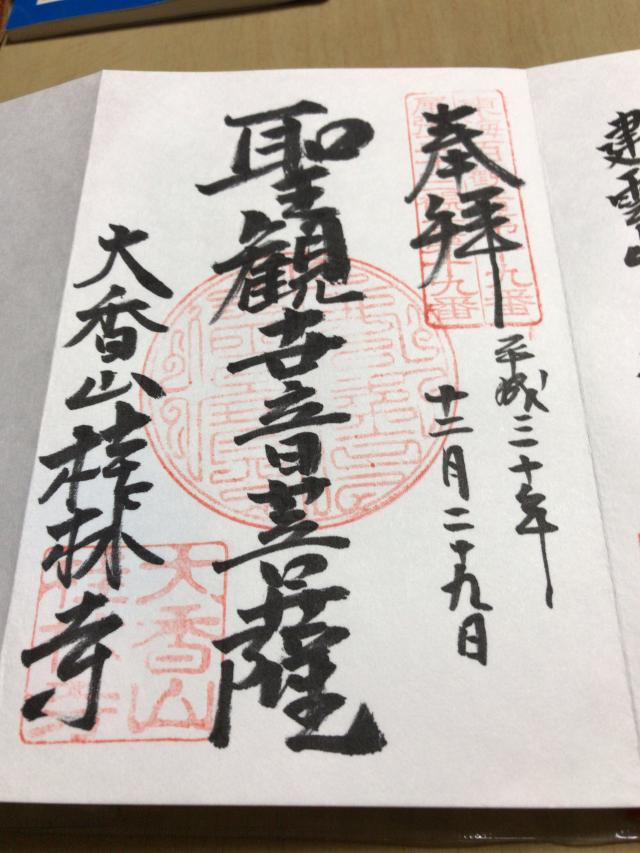 奉拝
平成三十年
十二月二十九日
聖観世音菩薩
大香山桂林寺
大香山
桂林寺
建雲山